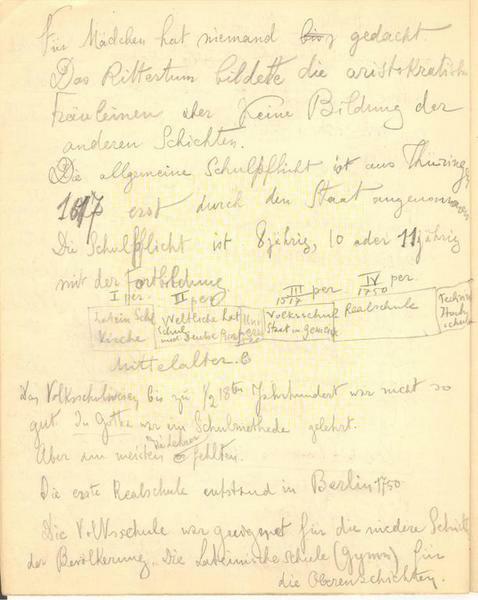 Für Mädchen hat niemand gedacht
Das Rittertum bildete die aristokratisch
Fräuleinen aber keine Bildung der
anderen Schichten.
Die allgemeine Schulpflicht ist aus Thüringen
erst durch den Staat angenommen
Die Schulpflicht ist 8jährig, 10 ader 11jährig
mit der Fortbildung
I Per. II per III per IV per.
1750
Latein Sch Weltliche Lat Volksschul Realschule Technisch
Kirche Schul und Deutsche Staat in Gemeinde Hoch
schule
Mittelalter.
Das Volksschulwesen bis zu 1/2 18ten Jahrhundert war nicht so
gut. In Gotha war ein Schulmethode gelehrt.
die Lehrer
Aber am meisten fehlten.
Die erste Realschule entstand in Berlin 1750
Die Volksschule war geeignet für die niedere Schicht
der Bevölkerung. Die Lateinische Schule (Gymn) für
die Oberen Schichten.